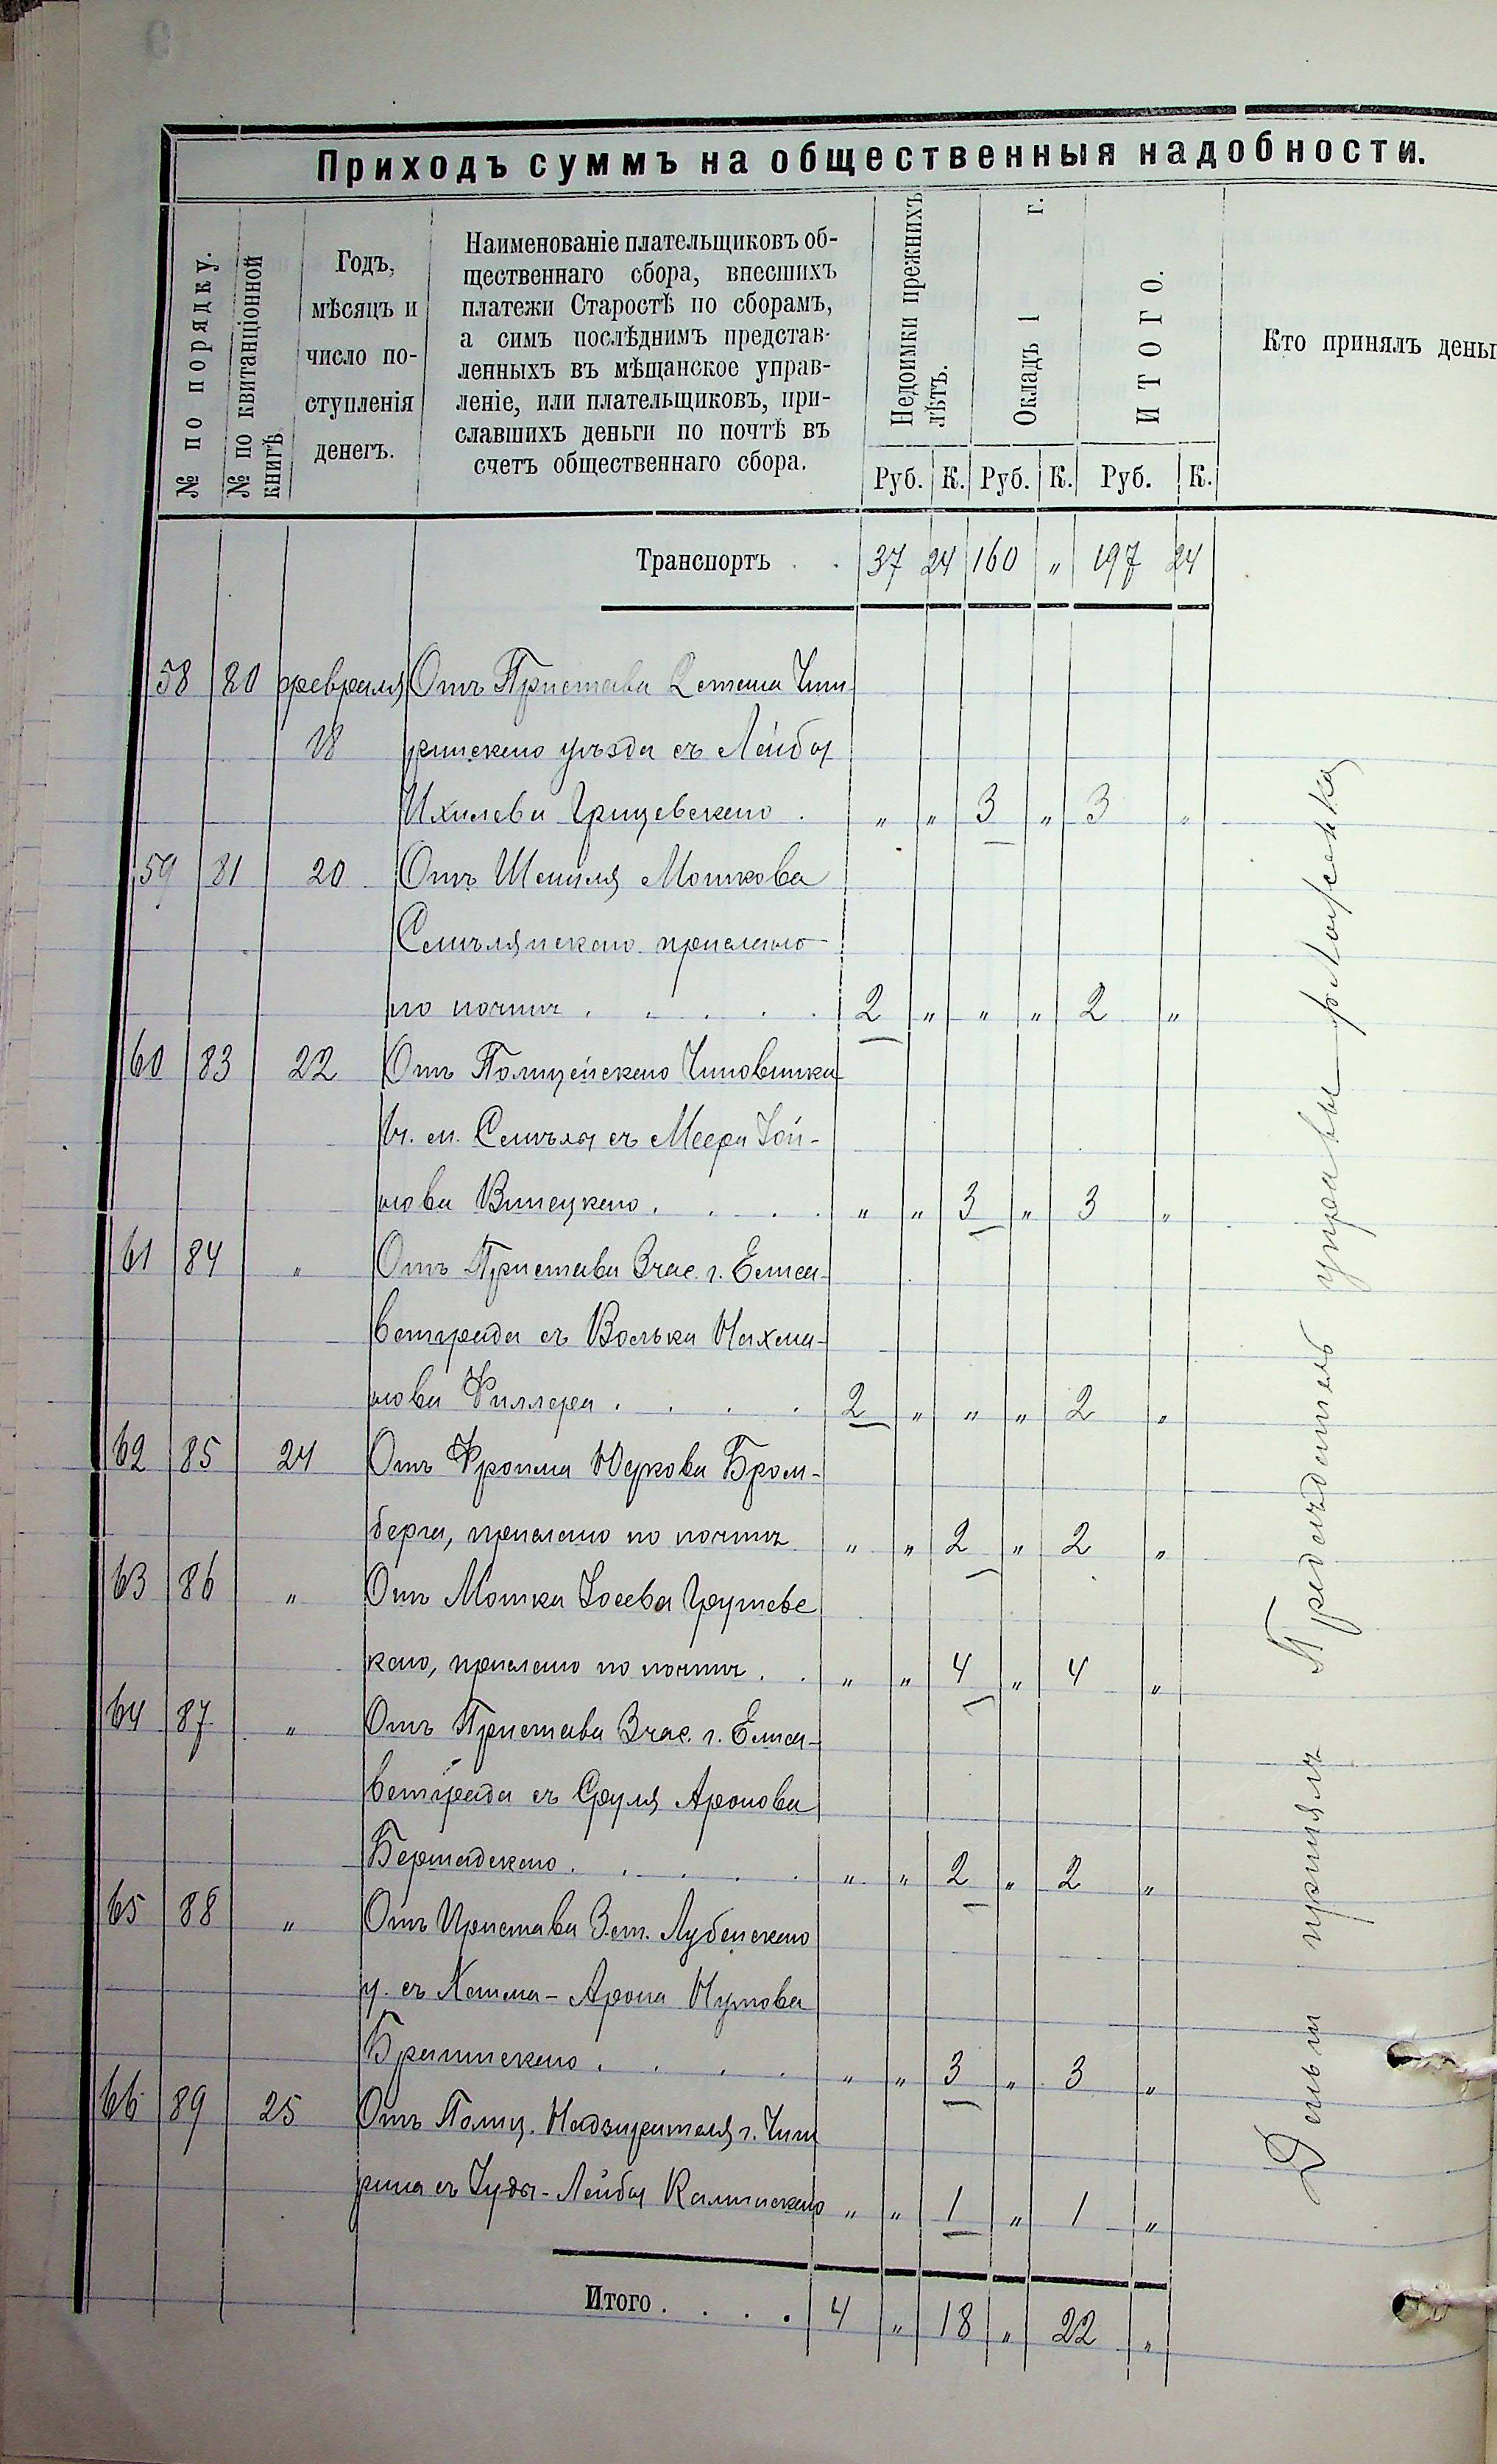 Приходъ суммъ на общественныя надобности.
№ по порядку.
№ по квитанціонной
книгѣ
Годъ,
мѣсяцъ и
число по-
ступленія
денегъ.
Наименованіе плательщиковъ об-
щественнаго сбора, внесшихъ
платежи Старостѣ по сборамъ,
а симъ послѣднимъ представ-
ленныхъ въ мѣщанское управ-
леніе, или плательщиковъ, при-
славшихъ деньги по почтѣ въ
счетъ общественнаго сбора.
Недоимки прежнихъ
лѣтъ.
Окладъ 1 г.
ИТОГО.
Кто принялъ деньг
Руб. К. Руб. К. Руб. К.
Транспортъ . . 37 24 160 " 197 24
58 80 февраля Отъ Пристава 2 стана Чиги-
18 ринскаго уѣзда съ Лейбы
Ихилева Грищевскаго . " " 3 " 3 "
59 81 20 Отъ Шмиля Мошкова
Смѣлянскаго прислано
по почтѣ . . . . . 2 " " " 2 "
60 83 22 Отъ Полицейскаго Чиновника
въ м. Смѣлы съ Меера Іой-
нова Винецкаго . . . . " " 3 " 3 "
61 84 " Отъ Пристава 3 час. г. Елиса-
ветграда съ Волька Нахма-
нова Филлера . . . . 2 " " " 2 "
62 85 24 Отъ Фроима Юдкова Бром-
берга, прислано по почтѣ " " 2 " 2 "
63 86 " Отъ Мошка Іосева Грушевс
каго, прислано по почтѣ . . " " 4 " 4 "
64 87 " Отъ Пристава 3 час. г. Елиса-
ветграда съ Сруля Аронова
Бершадскаго . . . . . " " 2 " 2 "
65 88 " Отъ Пристава 3 ст. Лубенскаго
у. съ Хаима-Арона Нутова
. . . . " " 3 " 3 "
66 89 25 Отъ Полиц. Надзирателя г. Чиги
рина съ Іуды-Лейбы Калинскаго " " 1 " 1 "
Итого . . . . 4 " 18 " 22 "
Деньги принялъ Предсѣдатель управы